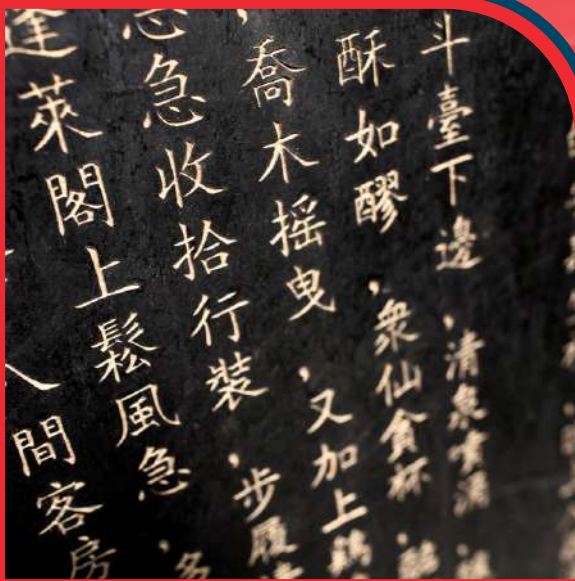 斗臺下邊,清泉噴涌,
酥如醪,衆仙貪杯,
,喬木摇曳,又加上
急收拾行裝,步履
蓬萊閣上鬆風急,多
人間客房